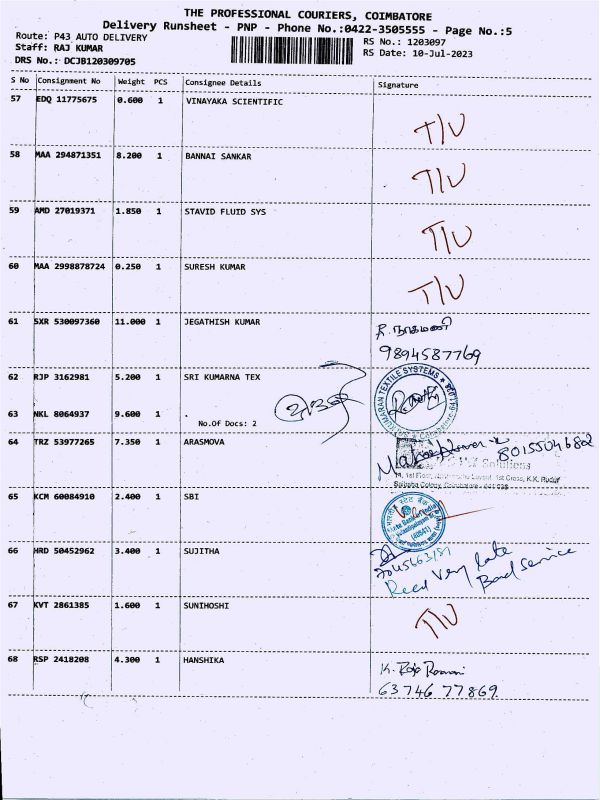 THE PROFESSIONAL COURIERS, COIMBATORE
Delivery Runsheet - PNP - Phone No.:0422-3505555 - Page No.:5
Route: P43 AUTO DELIVERY
RS No.: 1203097
Staff: RAJ KUMAR
RS Date: 10-Jul-2023
DRS No.: DCJB120309705
S No Consignment No Weight PCS Consignee Details Signature
57 EDQ 11775675 0.600 1 VINAYAKA SCIENTIFIC
T/U
58 MAA 294871351 8.200 1 BANNAI SANKAR
T/U
59 AMD 27019371 1.850 1 STAVID FLUID SYS
T/U
60 MAA 2998878724 0.250 1 SURESH KUMAR
T/U
61 SXR 530097360 11.000 1 JEGATHISH KUMAR
R. நாகமணி
9894587769
62 RJP 3162981 5.200 1 SRI KUMARNA TEX
KUMARAN TEXTILE SYSTEMS
63 NKL 8064937 9.600 1 .
No.Of Docs: 2
64 TRZ 53977265 7.350 1 ARASMOVA
8015504682
Solutions
1st Floor, Layout, 1st Cross, K.K. Pudur
Saibaba Colony, Coimbatore - 641 038
65 KCM 60084910 2.400 1 SBI
भारतीय स्टेट बैंक
State Bank of India
66 HRD 50452962 3.400 1 SUJITHA
Recd Very late
Bad service
67 KVT 2861385 1.600 1 SUNIHOSHI
T/U
68 RSP 2418208 4.300 1 HANSHIKA
K.
63746 77869